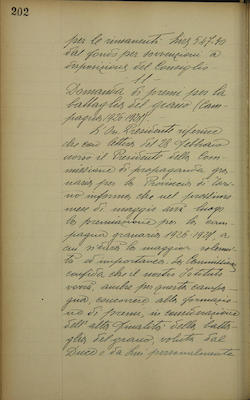 202
per le rimanenti Lire 547.40
dal fondo per sovvenzioni a
disposizione del Consiglio
11
Domanda di premi per la
battaglia del grano (Cam-
pagna 1926-1927)
L'On. Presidente riferisce
che con lettera del 28 febbraio
corso il Presidente della Com-
missione di propaganda gra-
naria per la Provincia di
informa che nel prossimo
mese di maggio avrà luogo
la premiazione per la cam-
pagna granaria 1926-1927, a
cui
ed importanza. La Commissione
confida che il nostro Istituto
vorrà, anche per questa campa-
gna, concorrere alla formazio-
ne di premi, in considerazione
dell'alta finalità della batta-
glia del grano, voluta dal
Duce e da Lui personalmente